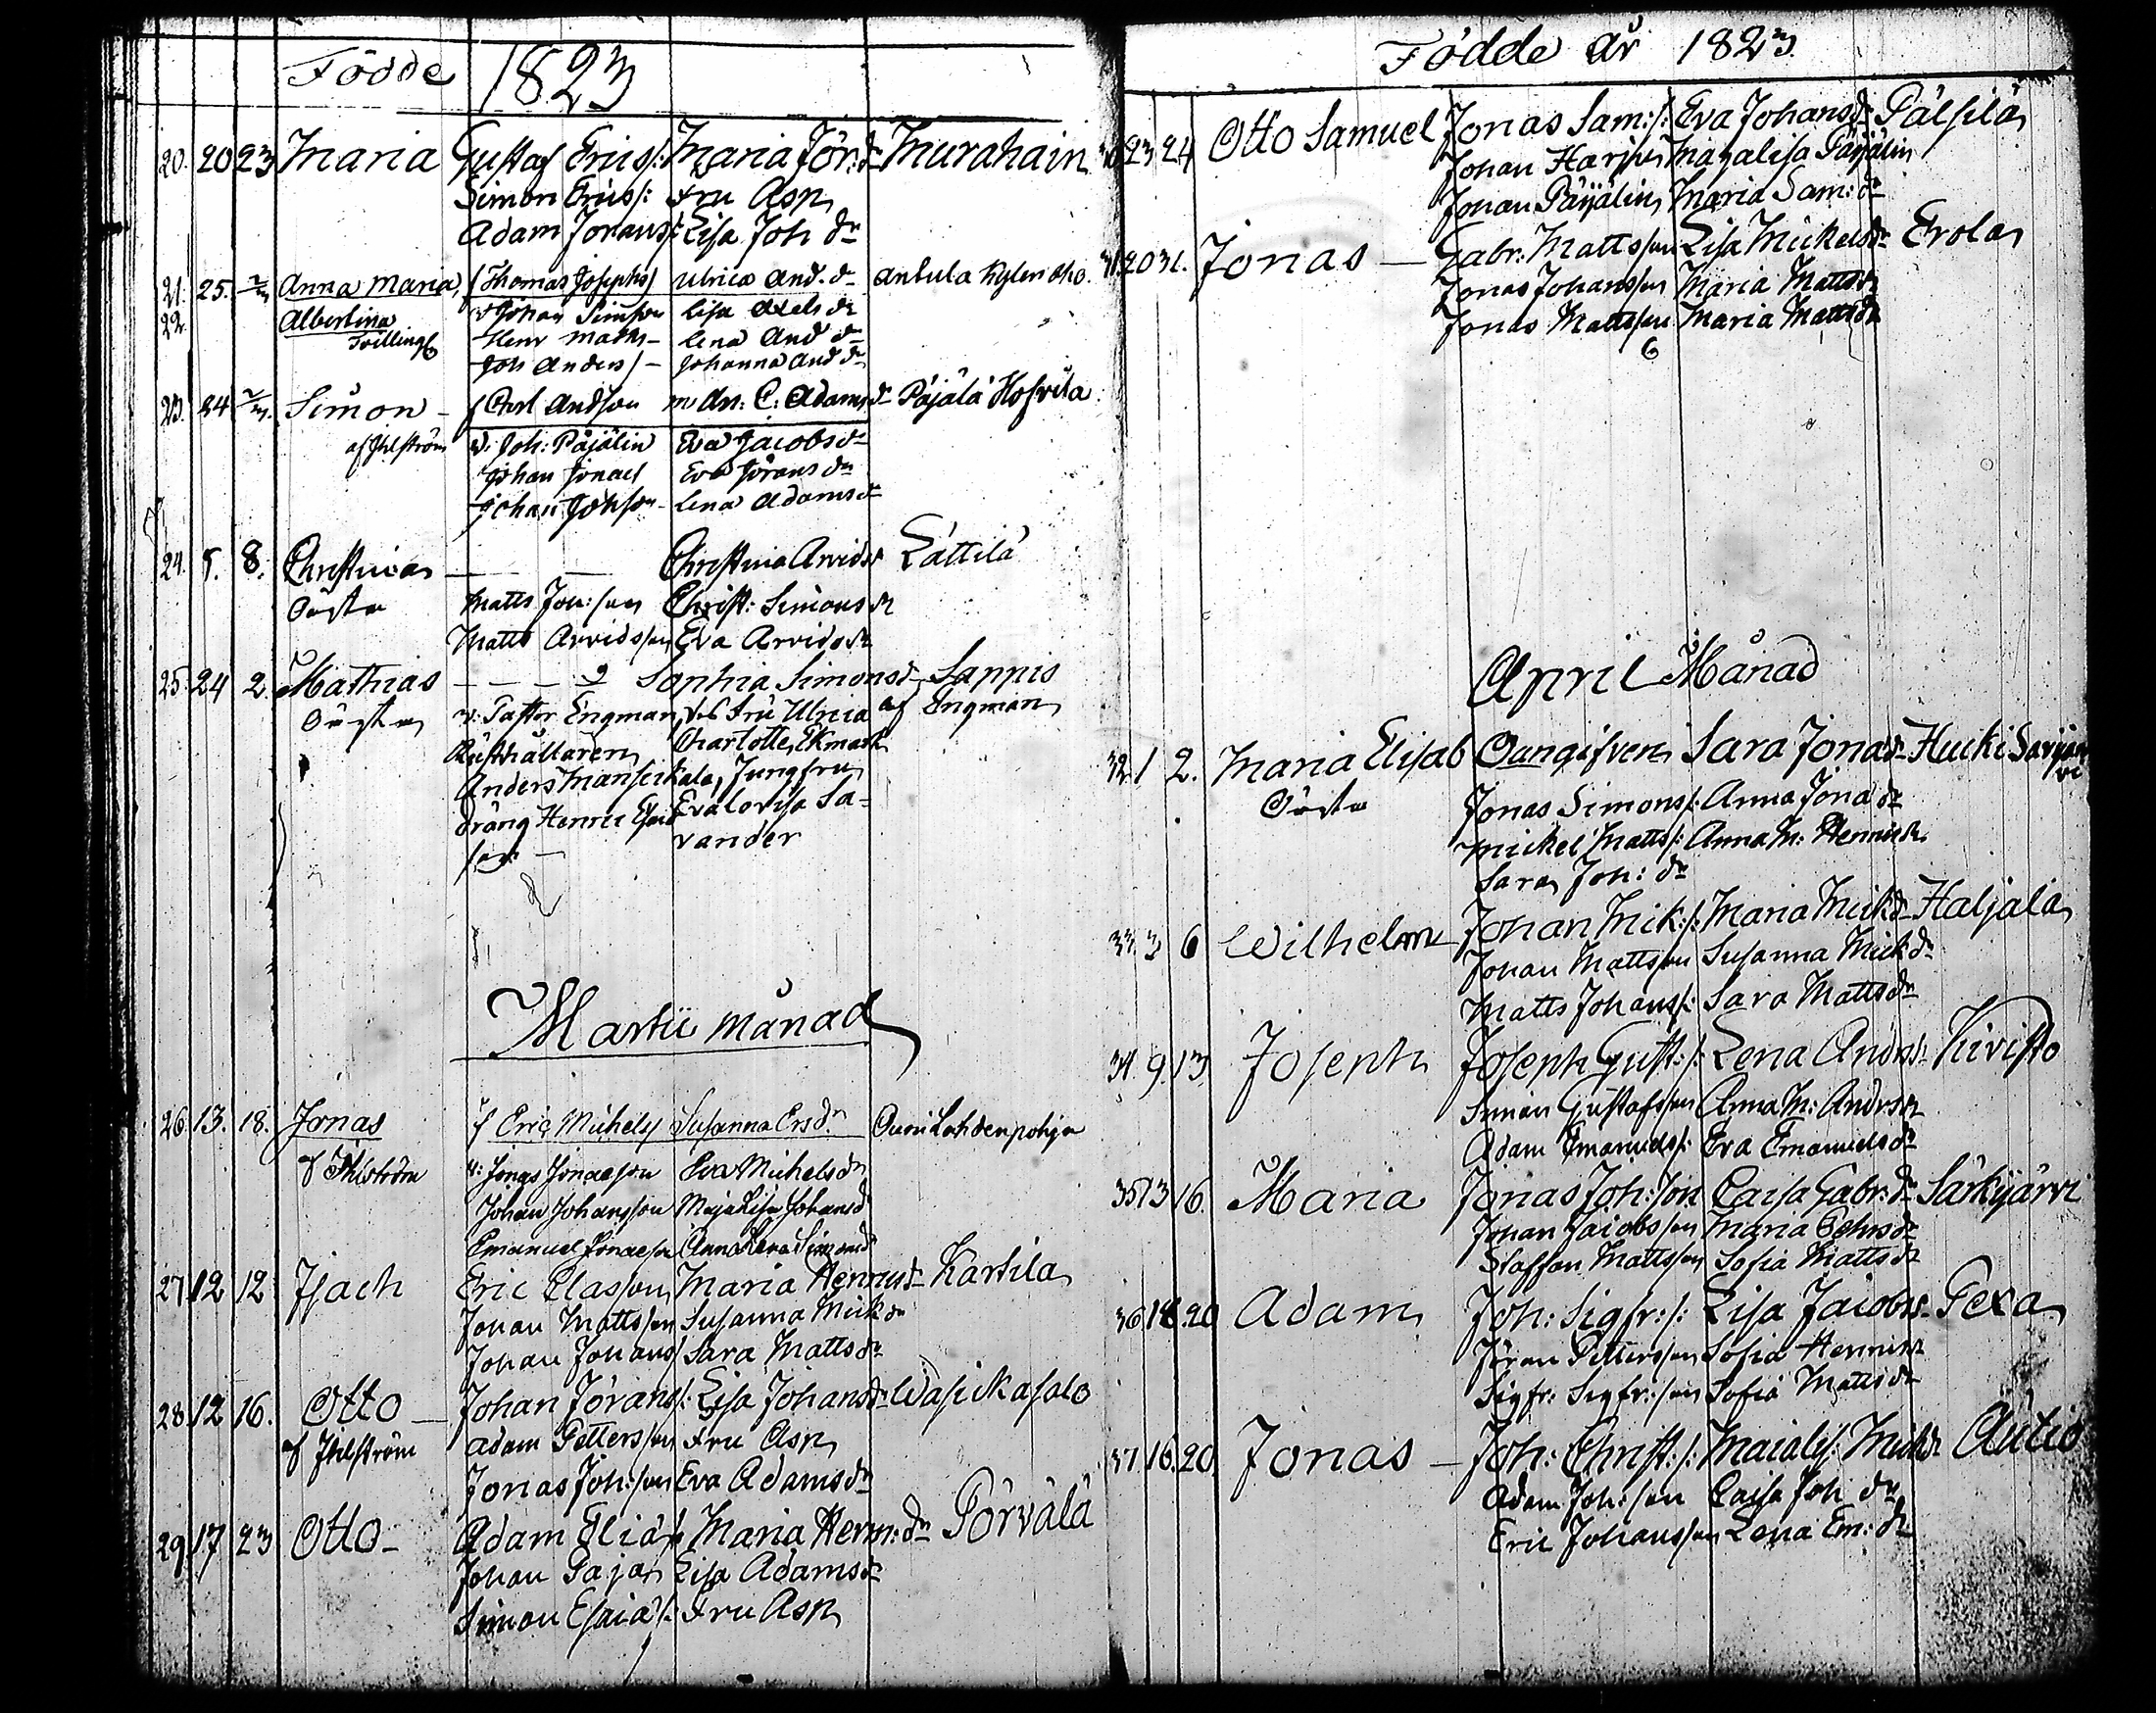 Födde 1823
20. 20 23 Maria Gustaf Erics/: Maria Jör: dr Murahain
Simon Erics/: Fru Asp
Adam Jörans/: Lisa Joh dr
21. 25. Anna Maria, f Thomas Josephs/ Ulrica And. dr Anbula
22. Albertina v Johan Simson Lisa Axels dr
Tvilling Henr Matts- Lena And dr
Joh Anders/- Johanna And dr
23. 24 Simon - f Carl Andson m An: C: Adams dr Päjälä
af Ihlström v. Joh: Päjälin Eva Jacobs dr
Johan Jonas Eva Jörans dr
Johan Johson- Lena Adams dr
24. 5. 8. Christina Christina Arvids Lattila
Oäkta Matts Joh:son Christ: Simons dr
Matts Arvidsson Eva Arvids dr
25. 24 2 Mathias Sophia Simonsd Sappis
Oäkta v: Pastor Engman, Fru Ulrica af Engman
Rusthållaren Charlotte Ekmark
Anders Mansikkala, Jungfru
dräng Henric Esaias Eva Lovisa Sa-
son - vander
Martii månad
26. 13. 18. Jonas f Eric Michels/ Susanna Ersdr Ouri Lahdenpohja
af Ihlström v: Jonas Jonasson Eva Michelsdr
Johan Johansson Maja Lisa Johansd
Emanuel Jonasson Anna Lena Simonsd
27 12 12 Isach Eric Classon Maria Henricsdr Karsila
Johan Mattsson Susanna Mick dr
Johan Johans/ Sara Matts dr
28 12 16. Otto - Johan Jörans/: Lisa Johans dr Wasikasalo
af Ihlström Adam Pettersson Fru Asp
Jonas Joh:son Eva Adams dr
29 17 23 Otto - Adam Elias/: Maria Henr: dr Pörvälä
Johan Paja Lisa Adams dr
Simon Esaia/: Fru Asp
Födde år 1823.
30 23 24 Otto Samuel Jonas Sam:/: Eva Johans dr Pälsilä
Johan Harju Magalisa Päjälin
Johan Päjälin Maria Sam: dr
31 20 31. Jonas - Gabr: Mattsson Lisa Mickels dr Erola
Jonas Johansson Maria Matts dr
Jonas Mattsson Maria Matts dr
6
April Månad
32 1 2. Maria Elisab Oangifven Sara Jonas dr Hucki Särkijär
vi
Oäkta Jonas Simons/: Anna Jona dr
Mickel Matts/: Anna M: Henric dr
Sara Joh: dr
33. 3 6 Wilhelm Johan Mik:/: Maria Mick dr Haljala
Johan Mattsson Susanna Mick dr
Matts Johans/: Sara Matts dr
34. 9. 13. Joseph Joseph Gust:/: Lena Andrs dr Kivisto
Simon Gustafsson Anna M: Andrs dr
Adam Emanuels/: Eva Emanuels dr
35 13 16. Maria Jonas Joh:son Caisa Gabr: dr Särkijärvi
Johan Jacobsson Maria Pehrs dr
Staffan Mattsson Sofia Matts dr
36 18 20 Adam Joh: Sigfr:/: Lisa Jacobs dr Pexa
Jöran Pettersson Sofia Henric dr
Sigfr: Sigfr:son Sofia Matts dr
37. 16. 20. Jonas - Joh: Christ:/: Maialis: Mick dr Autio
Adam Joh:son Caisa Joh dr
Eric Johansson Lena Em: dr